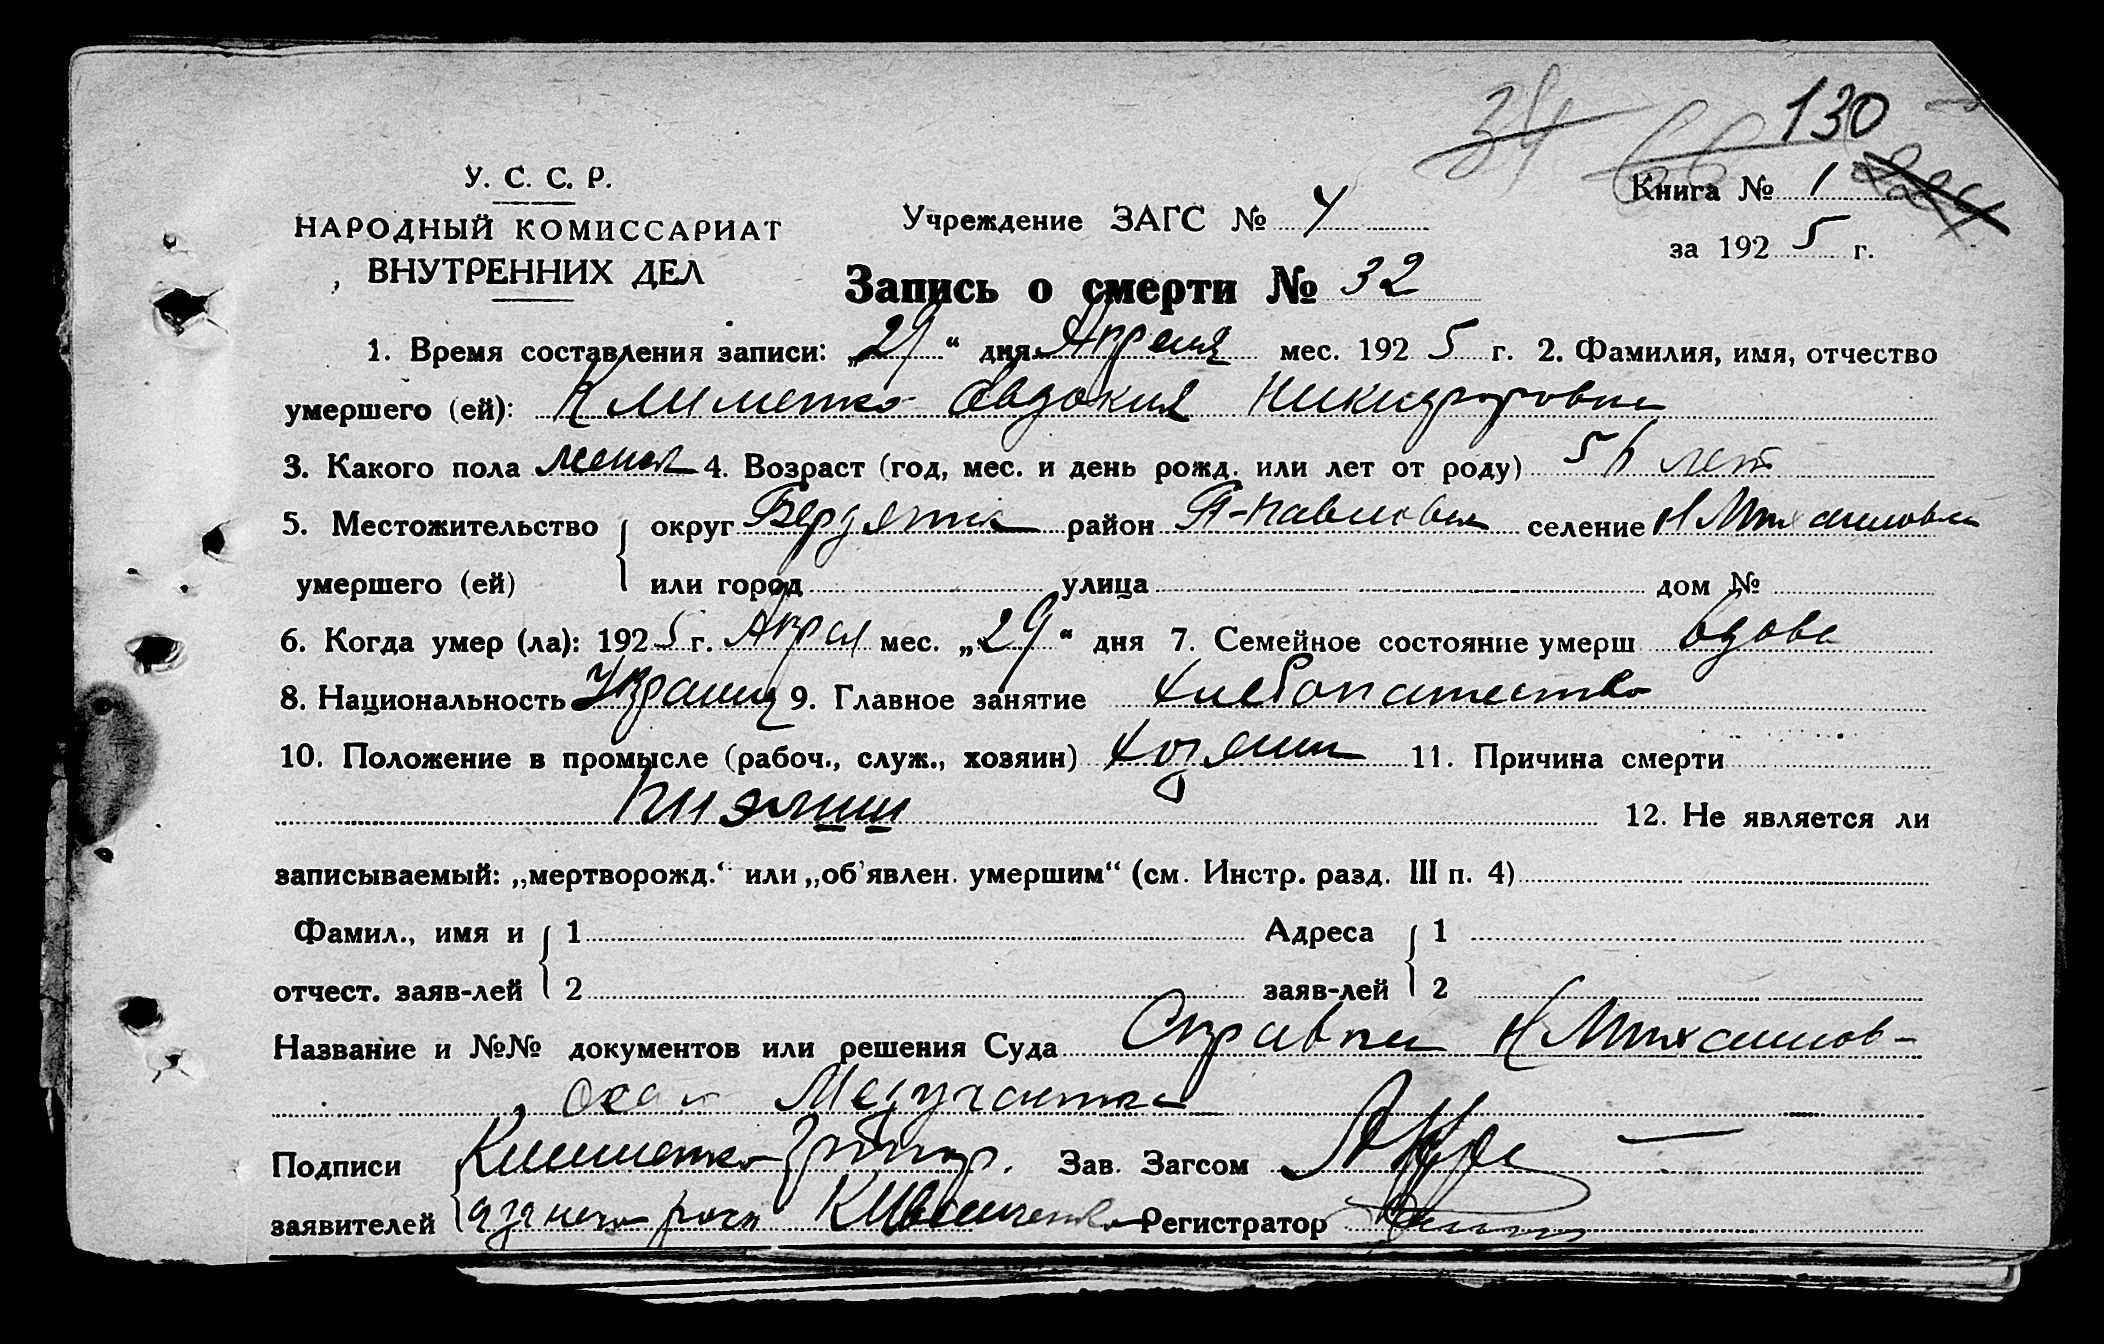 34 66 130
У. С. С. Р.
НАРОДНЫЙ КОМИССАРИАТ
ВНУТРЕННИХ ДЕЛ
Учреждение ЗАГС № 4
Книга № 1
за 1925 г.
Запись о смерти № 32
1. Время составления записи: „29“ дня Апреля мес. 1925 г. 2. Фамилия, имя, отчество
умершего (ей): Клименко Евдокия Никифоровна
3. Какого пола женск 4. Возраст (год, мес. и день рожд. или лет от роду) лет
5. Местожительство округ Бердянск район П-Павловск селение Н Михайловка
умершего (ей) или город улица дом №
6. Когда умер (ла): 1925 г. Апреля мес. „29“ дня 7. Семейное состояние умерш вдова
8. Национальность Украинц 9. Главное занятие хлебопашество
10. Положение в промысле (рабоч., служ., хозяин) хозяин 11. Причина смерти
12. Не является ли
записываемый: „мертворожд.“ или „об'явлен. умершим“ (см. Инстр. разд. III п. 4)
Фамил., имя и 1 Адреса 1
отчест. заяв-лей 2 заяв-лей 2
Название и №№ документов или решения Суда Справка Н Михайлов-
ского Медучастка
Подписи Клименко Зав. Загсом
заявителей а за него расп Регистратор